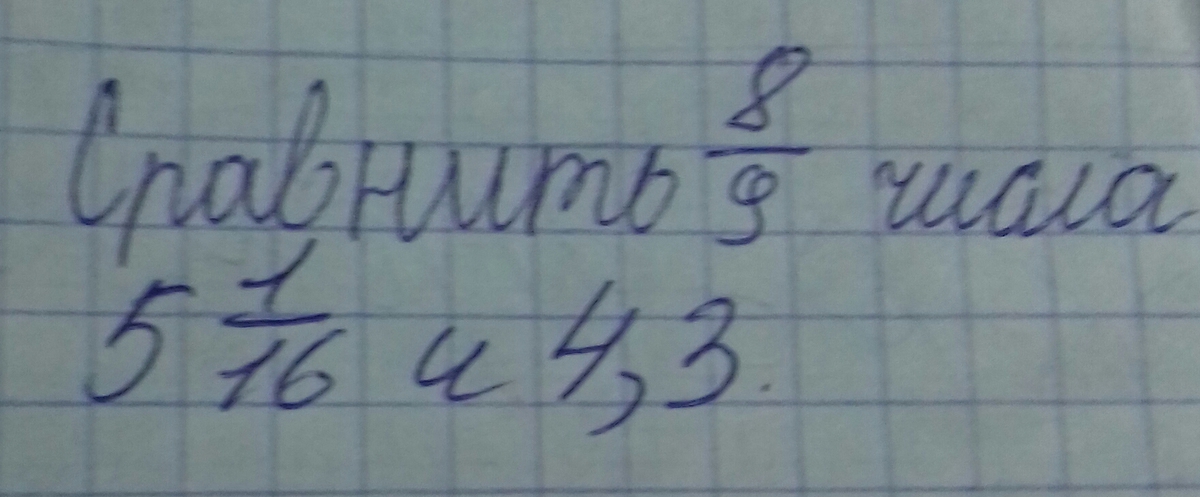 Сравнить 8/9 числа
5 1/16 и 4,3.